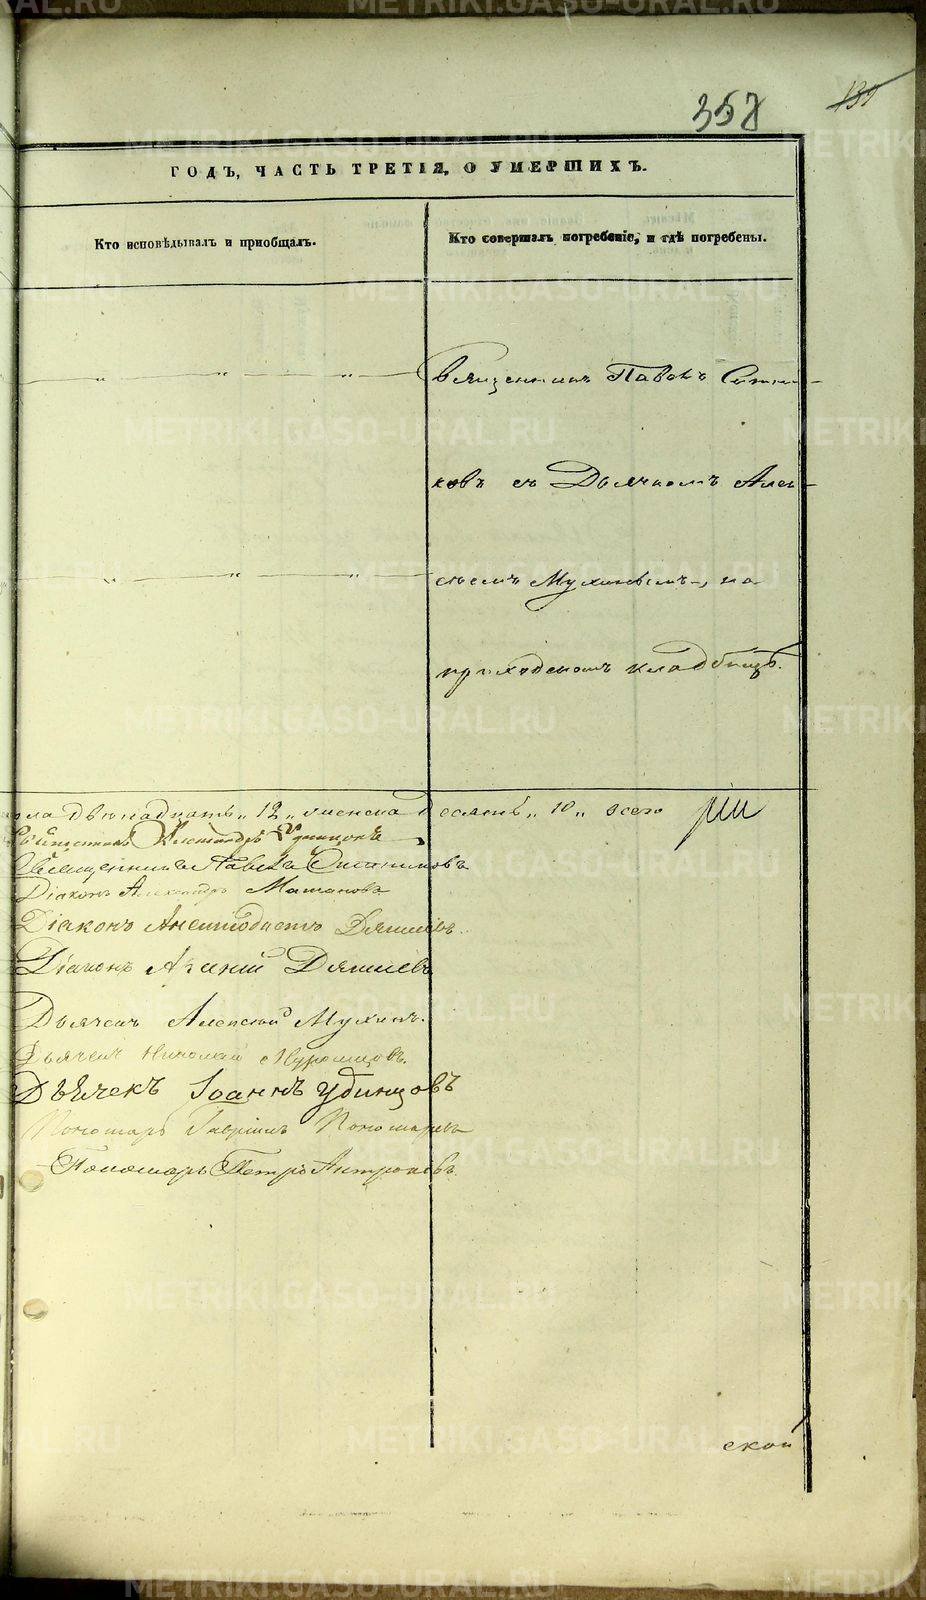 358
139
ГОДЪ, ЧАСТЬ ТРЕТІЯ, О УМЕРШИХЪ.
Кто исповѣдывалъ и приобщалъ.
Кто совершалъ погребеніе, и гдѣ погребены.
Священникъ Павелъ Ситни-
ковъ съ Дьячкомъ Алек-
сѣемъ Мухинымъ, на
приходскомъ кладбищѣ.
пола двѣнадцать „12„ женска десять „10„ всего
Священникъ Павелъ Ситниковъ
Діаконъ Александръ
Діаконъ Анемподистъ Дягилевъ.
Діаконъ Агапій Дягилевъ
Дьячекъ Алексѣй Мухинъ.
Дьячекъ Николай
Дьячекъ Іоаннъ Удинцовъ
Пономарь Гавріилъ Пономаревъ
Пономарь Петръ Антроповъ
ской
METRIKI.GASO-URAL.RU